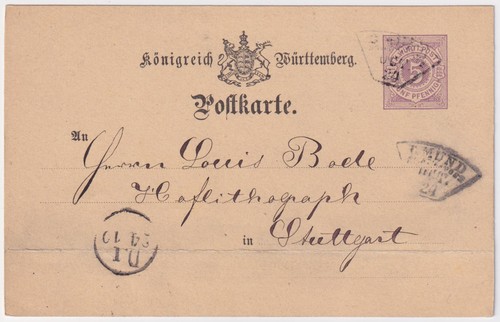 Königreich Württemberg.
Postkarte.
An
Herrn Louis Bode
Hoflithograph
in Stuttgart
GMÜND
24
D.I.
24 10